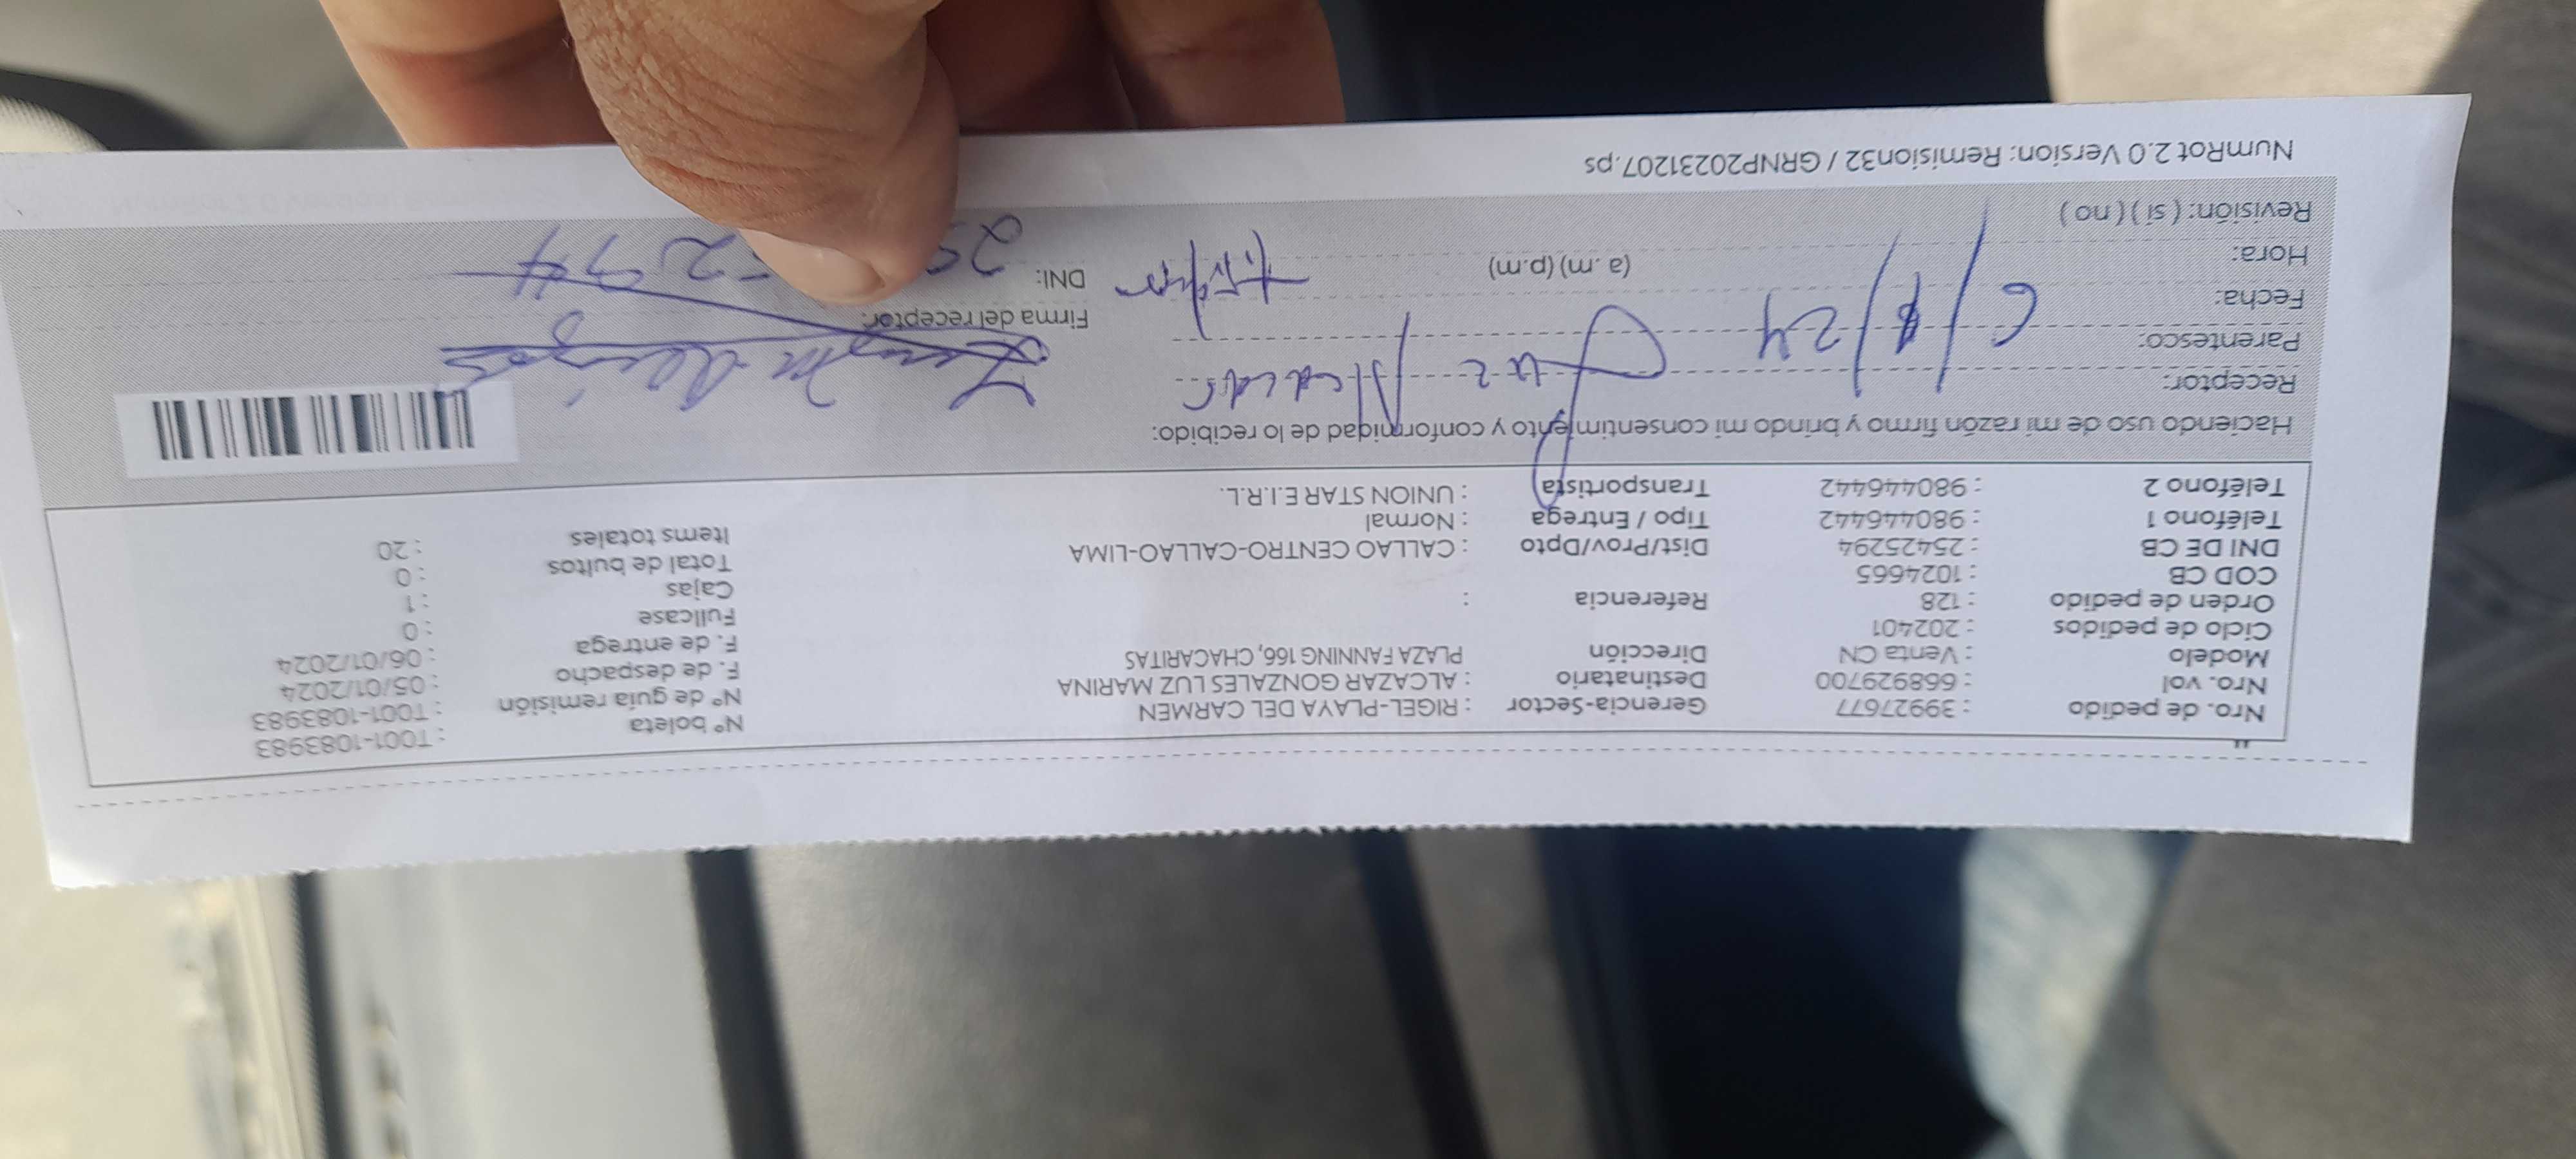 Nro. de pedido : 39927677 Gerencia-Sector : RIGEL-PLAYA DEL CARMEN Nº boleta : T001-1083983
Nro. vol : 668929700 Destinatario : ALCAZAR GONZALES LUZ MARINA Nº de guía remisión : T001-1083983
Modelo : Venta CN Dirección PLAZA FANNING 166, CHACARITAS F. de despacho : 05/01/2024
Ciclo de pedidos : 202401 F. de entrega : 06/01/2024
Orden de pedido : 128 Referencia : Fullcase : 0
COD CB : 1024665 Cajas : 1
DNI DE CB : 25425294 Dist/Prov/Dpto : CALLAO CENTRO-CALLAO-LIMA Total de bultos : 0
Teléfono 1 : 980446442 Tipo / Entrega : Normal Items totales : 20
Teléfono 2 : 980446442 Transportista : UNION STAR E.I.R.L.
Haciendo uso de mi razón firmo y brindo mi consentimiento y conformidad de lo recibido:
Receptor: Luz
Parentesco:
Fecha: 24 Firma del receptor:
Hora: (a.m) (p.m) DNI:
Revisión: ( sí ) ( no )
NumRot 2.0 Version: Remision32 / GRNP20231207.ps